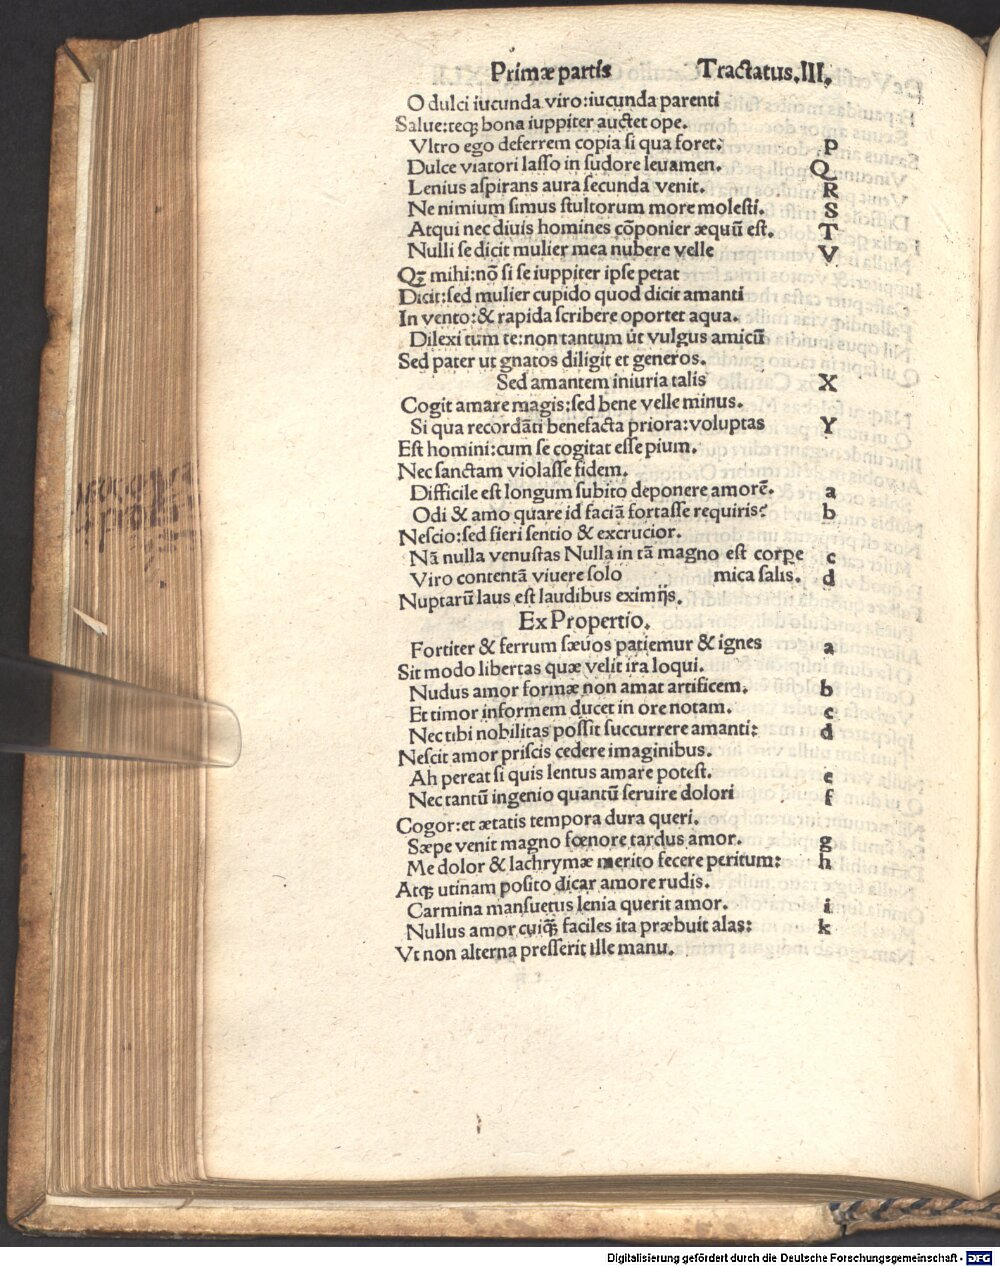 Primæ partis Tractatus.III.
O dulci iucunda viro:iucunda parenti
Salue:teqꝫ bona iuppiter auctet ope.
Vltro ego deferrem copia si qua foret: P
Dulce viatori lasso in sudore leuamen. Q
Lenius aspirans aura secunda venit. R
Ne nimium simus stultorum more molesti. S
Atqui nec diuis homines cõponier æquũ est. T
Nulli se dicit mulier mea nubere velle V
Qꝫ mihi:nõ si se iuppiter ipse petat
Dicit:sed mulier cupido quod dicit amanti
In vento:& rapida scribere oportet aqua.
Dilexi tum te:non tantum ut vulgus amicũ
Sed pater ut gnatos diligit et generos.
Sed amantem iniuria talis X
Cogit amare magis:sed bene velle minus.
Si qua recordãti benefacta priora:voluptas Y
Est homini:cum se cogitat esse pium.
Nec sanctam violasse fidem.
Difficile est longum subito deponere amorẽ. a
Odi & amo quare id faciã fortasse requiris? b
Nescio:sed fieri sentio & excrucior.
Nã nulla venustas Nulla in tã magno est corpe c
Viro contentã viuere solo mica salis. d
Nuptarũ laus est laudibus eximijs.
Ex Propertio.
Fortiter & ferrum sæuos patiemur & ignes a
Sit modo libertas quæ velit ira loqui.
Nudus amor formæ non amat artificem. b
Et timor informem ducet in ore notam. c
Nec tibi nobilitas possit succurrere amanti: d
Nescit amor priscis cedere imaginibus.
Ah pereat si quis lentus amare potest. e
Nec tantũ ingenio quantũ seruire dolori f
Cogor:et ætatis tempora dura queri.
Sæpe venit magno fœnore tardus amor. g
Me dolor & lachrymæ merito fecere peritum: h
Atqꝫ utinam posito dicar amore rudis.
Carmina mansuetus lenia querit amor. i
Nullus amor cuiqꝫ̃ faciles ita præbuit alas: k
Vt non alterna presserit ille manu.
Digitalisierung gefördert durch die Deutsche Forschungsgemeinschaft - DFG